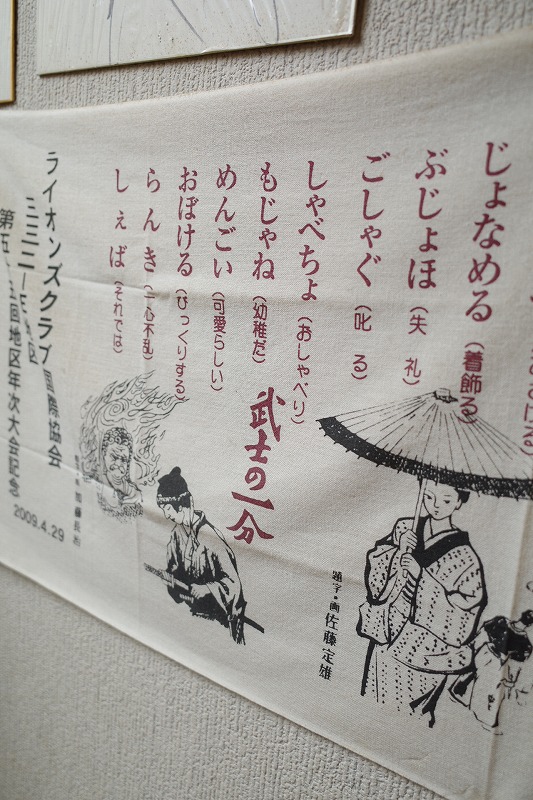 じょなめる(着飾る)
ぶじょほ(失礼)
ごしゃぐ(叱る)
しゃべちょ(おしゃべり)
もじゃね(幼稚だ)
めんごい(可愛らしい)
おぼける(びっくりする)
らんき(一心不乱)
しぇば(それでは)
武士の一分
題字・画 佐藤定雄
加藤長治
ライオンズクラブ国際協会
三三二―
回地区年次大会記念
2009.4.29